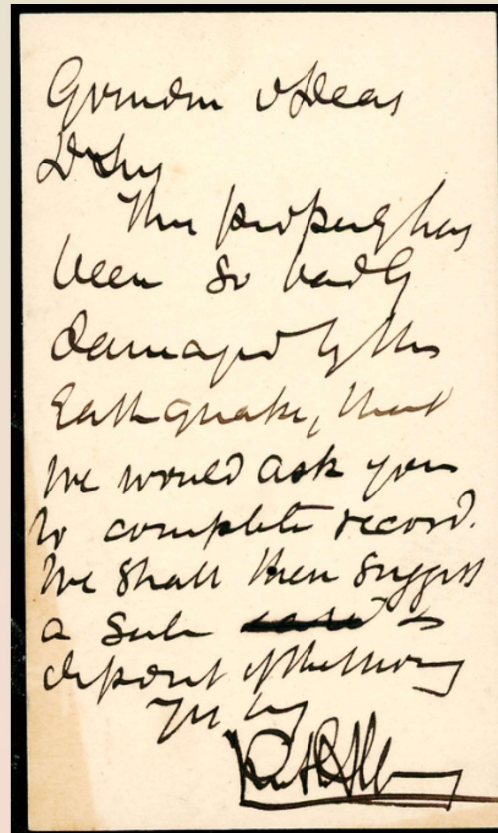 Dr Sir
The property has
been so badly
damaged by the
Earthquake, that
we would ask you
to complete record.
We shall then suggest
a sale
deposit of the money
Yrs try